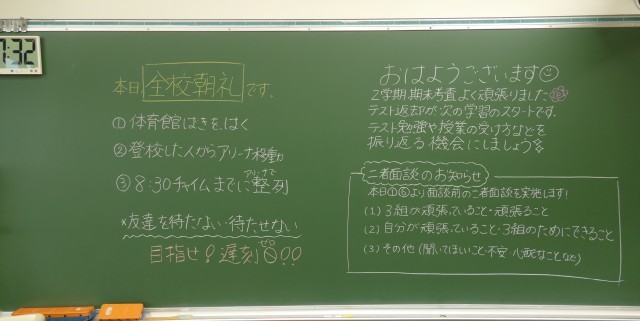 7:32
本日、全校朝礼です。
①体育館ばきをはく
②登校した人からアリーナ移動
③8:30チャイムまでに整列
アリーナで
*友達を待たない・待たせない
目指せ!遅刻0!!
ゼロ
おはようございます
2学期期末考査よく頑張りました
テスト返却が次の学習のスタートです。
テスト勉強や授業の受け方などを
振り返る機会にしましょう
二者面談のお知らせ
本日①⑥より面談前の二者面談を実施します!
(1) 3組が頑張っていること・頑張ること
(2) 自分が頑張っていること・3組のためにできること
(3) その他(聞いてほしいこと・不安・心配なことなど)